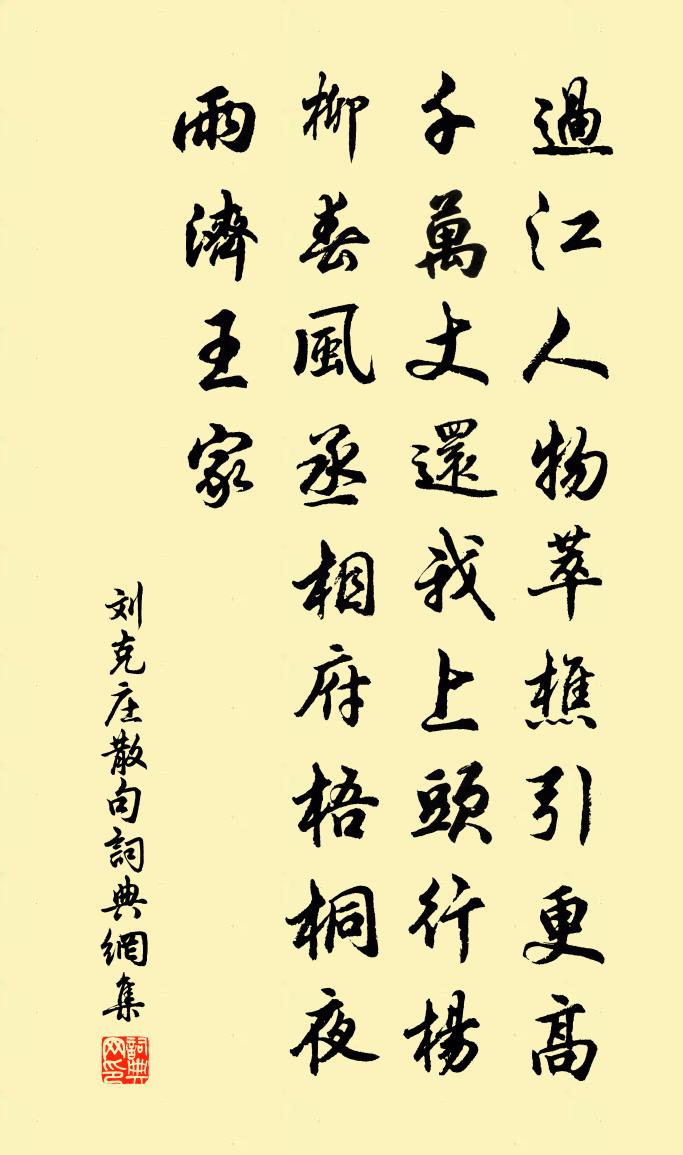 過江人物萃樵引更高
千萬丈還我上頭行楊
柳春風丞相府梧桐夜
雨濟王家
刘克庄散句詞典網集
詞典网印